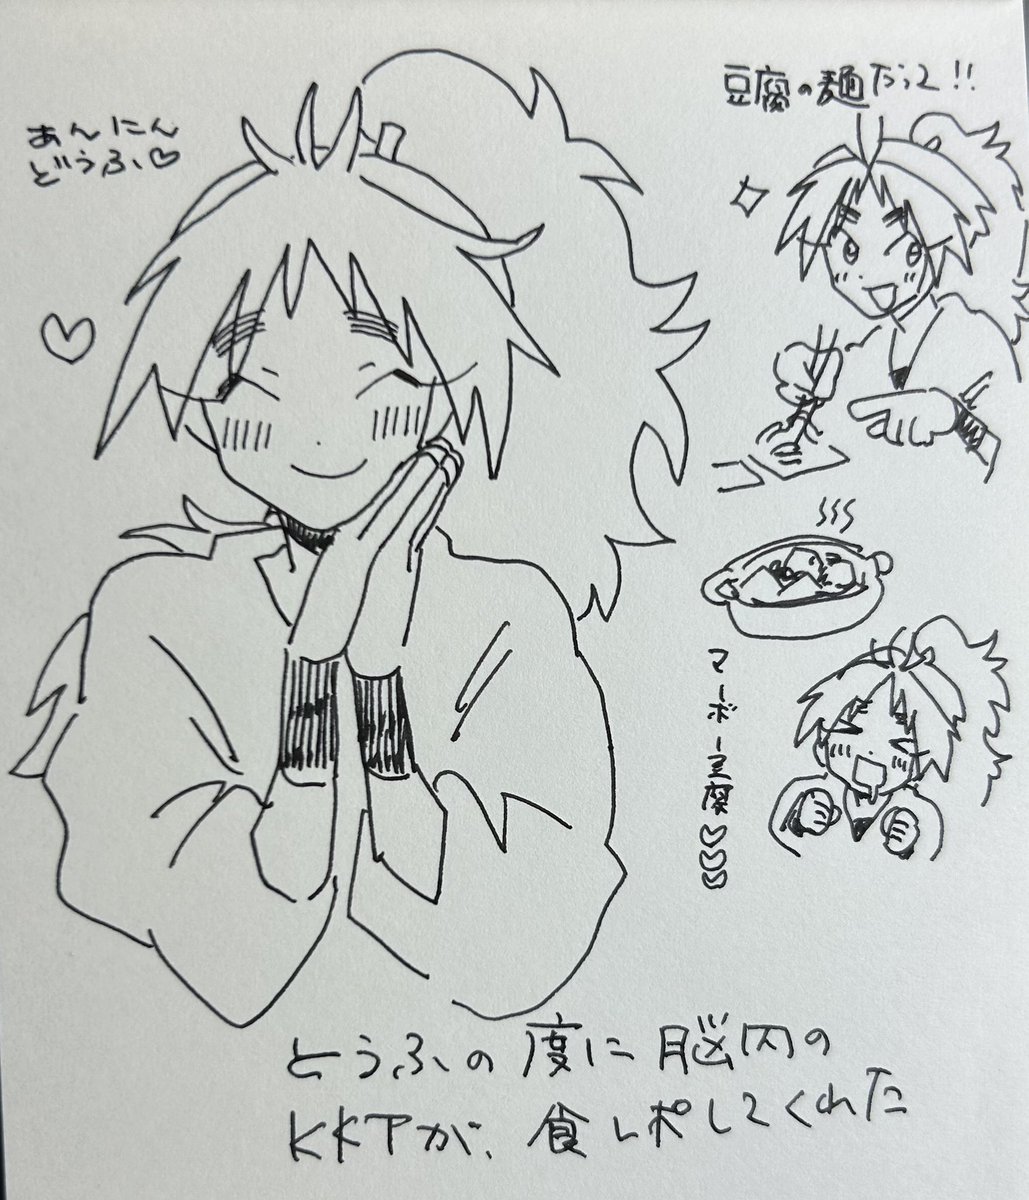 あんにん
どうふ♡
豆腐の麺だって!!
マーボー豆腐♡♡♡
とうふの度に脳内の
KKTが、食レポしてくれた